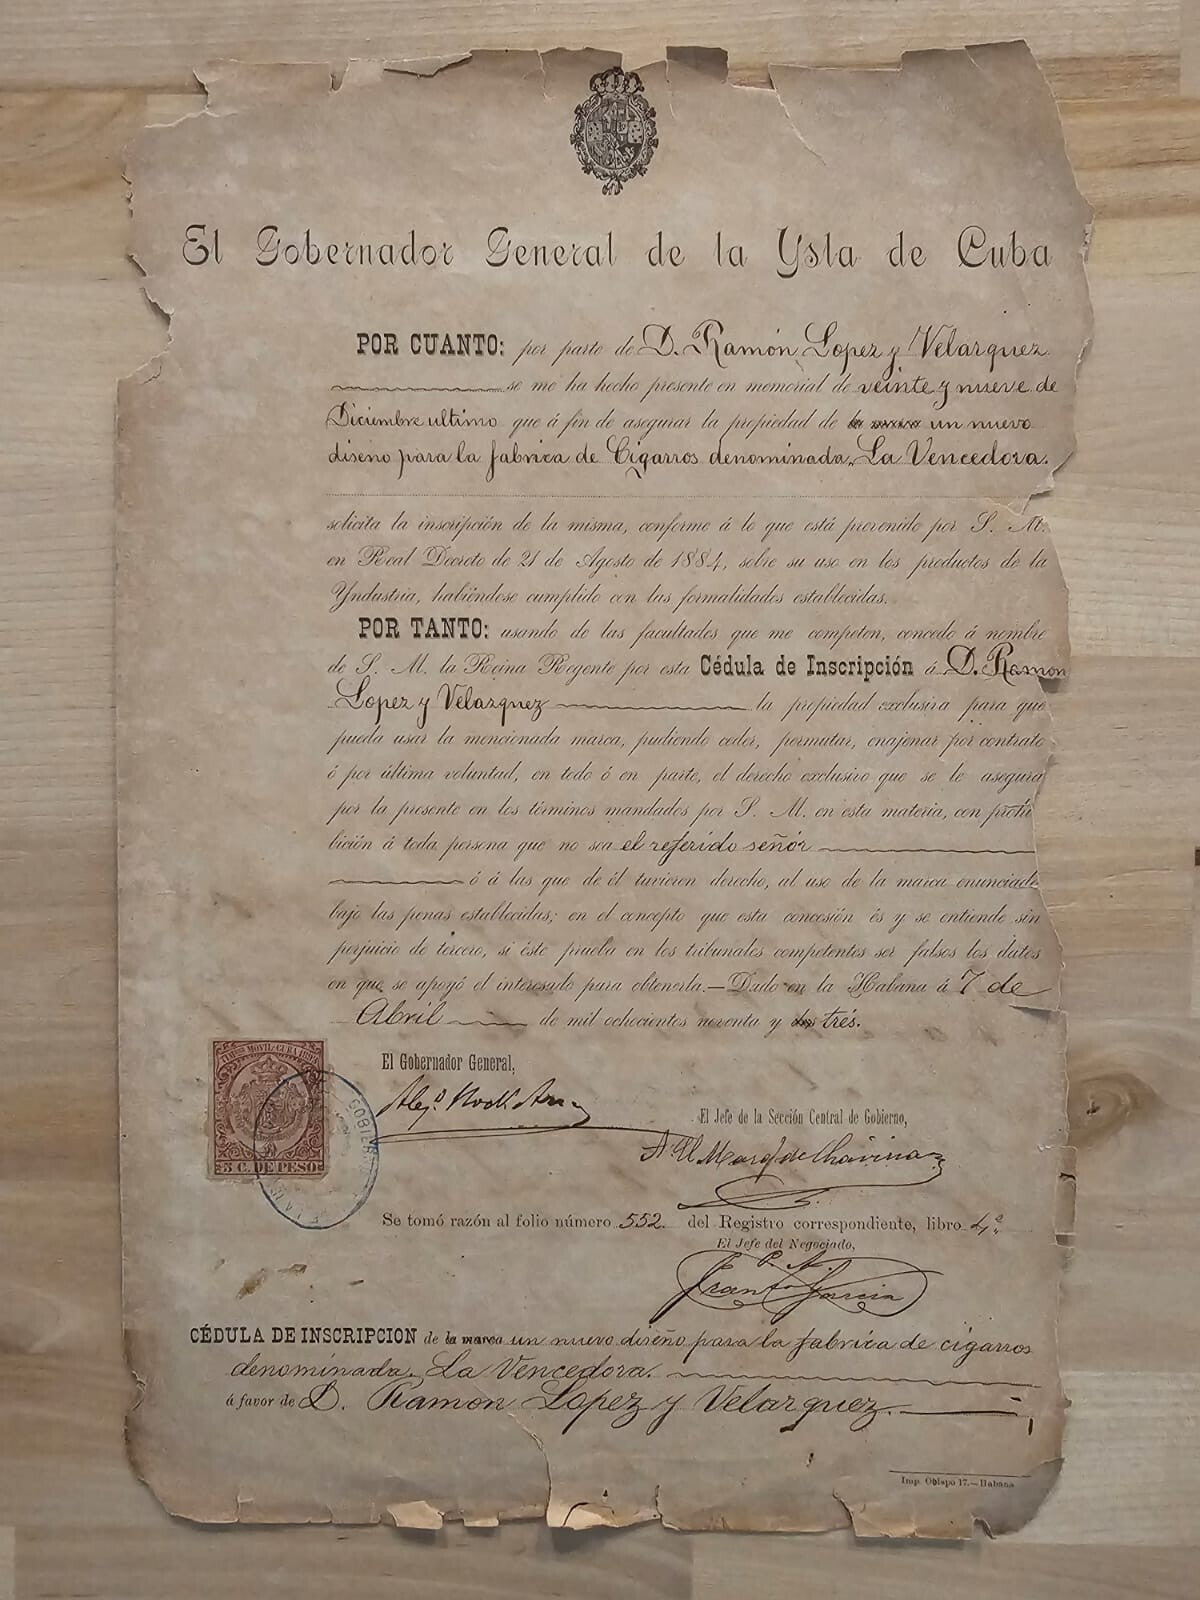 El Gobernador General de la Ysla de Cuba
POR CUANTO: por parte de D. Ramón Lopez y Velazquez
se me ha hecho presente en memorial de veinte y nueve de
Diciembre ultimo que á fin de asegurar la propiedad de la marca un nuevo
diseño para la fabrica de Cigarros denominada. La Vencedora.
solicita la inscripción de la misma, conforme á lo que está prevenido por S. M.
en Real Decreto de 21 de Agosto de 1884, sobre su uso en los productos de la
Yndustria, habiéndose cumplido con las formalidades establecidas.
POR TANTO: usando de las facultades que me competen, concedo á nombre
de S. M. la Reina Regente por esta Cédula de Inscripción á D. Ramon
Lopez y Velazquez la propiedad exclusiva para que
pueda usar la mencionada marca, pudiendo ceder, permutar, enajenar por contrato
ó por última voluntad, en todo ó en parte, el derecho exclusivo que se le asegura
por la presente en los términos mandados por S. M. en esta materia, con prohi
bición á toda persona que no sea el referido señor
ó á las que de él tuvieren derecho, al uso de la marca enunciada
bajo las penas establecidas; en el concepto que esta concesión és y se entiende sin
perjuicio de tercero, si éste prueba en los tribunales competentes ser falsos los datos
en que se apoyó el interesado para obtenerla.—Dado en la Habana á 7 de
Abril de mil ochocientos noventa y dos tres.
El Gobernador General,
El Jefe de la Sección Central de Gobierno,
MOVIL-CUBA
5 C. DE PESO
GOBIER
Se tomó razón al folio número 552. del Registro correspondiente, libro 4º
El Jefe del Negociado,
P. A.
Garcia
CÉDULA DE INSCRIPCION de la marca un nuevo diseño para la fabrica de cigarros
denominada. La Vencedora.
á favor de D. Ramon Lopez y Velazquez.
Imp. Obispo 17.—Habana